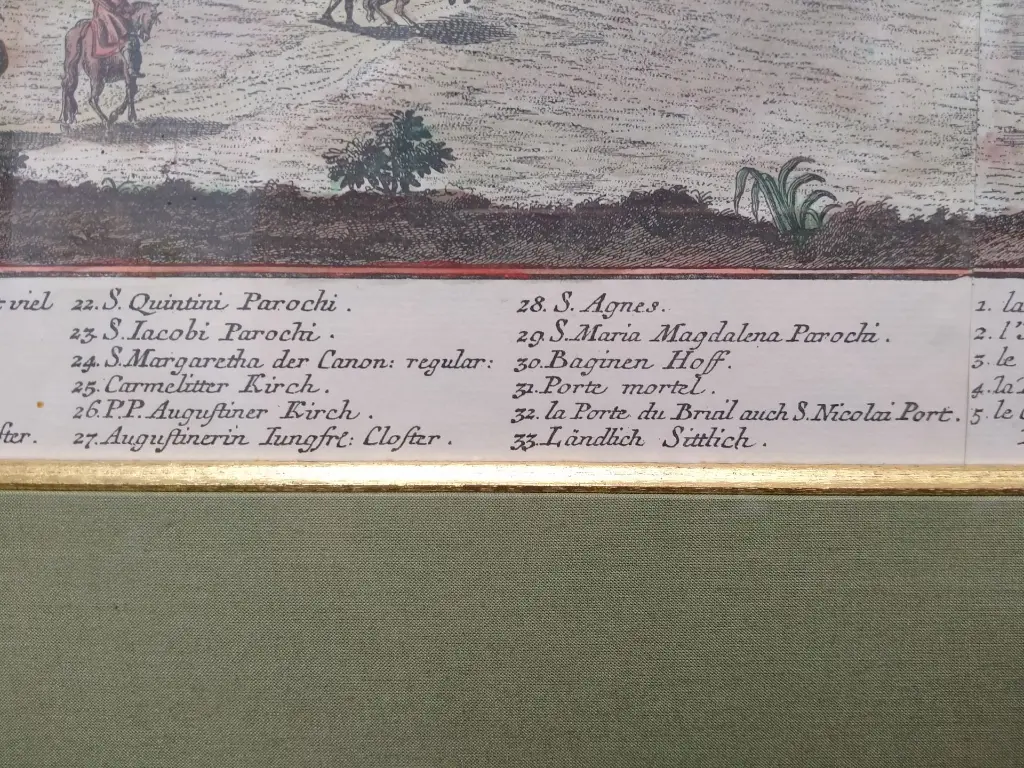 viel
ster.
22. S. Quintini Parochi.
23. S. Iacobi Parochi.
24. S. Margaretha der Canon: regular:
25. Carmelitter Kirch.
26. P.P. Augustiner Kirch.
27. Augustinerin Iungfr: Closter.
28. S. Agnes.
29. S. Maria Magdalena Parochi.
30. Baginen Hoff.
31. Porte mortel.
32. la Porte du Bruil auch S. Nicolai Port.
33. Ländlich Sittlich.
1. la
2. l'
3. le
4. la
5. le